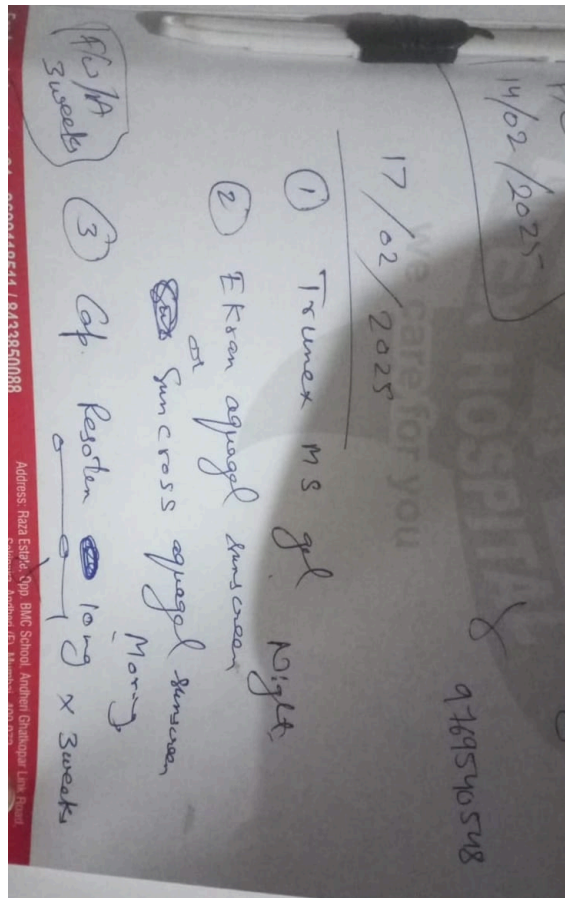 14/02/2025
HOSPITAL
we care for you
9769540548
17/02/2025
① Trunex MS gel Night
② Ekran aquagel sunscreen
or
Suncross aquagel sunscreen
Morning
③ Cap. 10mg x 3weeks
3weeks
8433850088
Address: Raza Estate, Opp. BMC School, Andheri Ghatkopar Link Road,